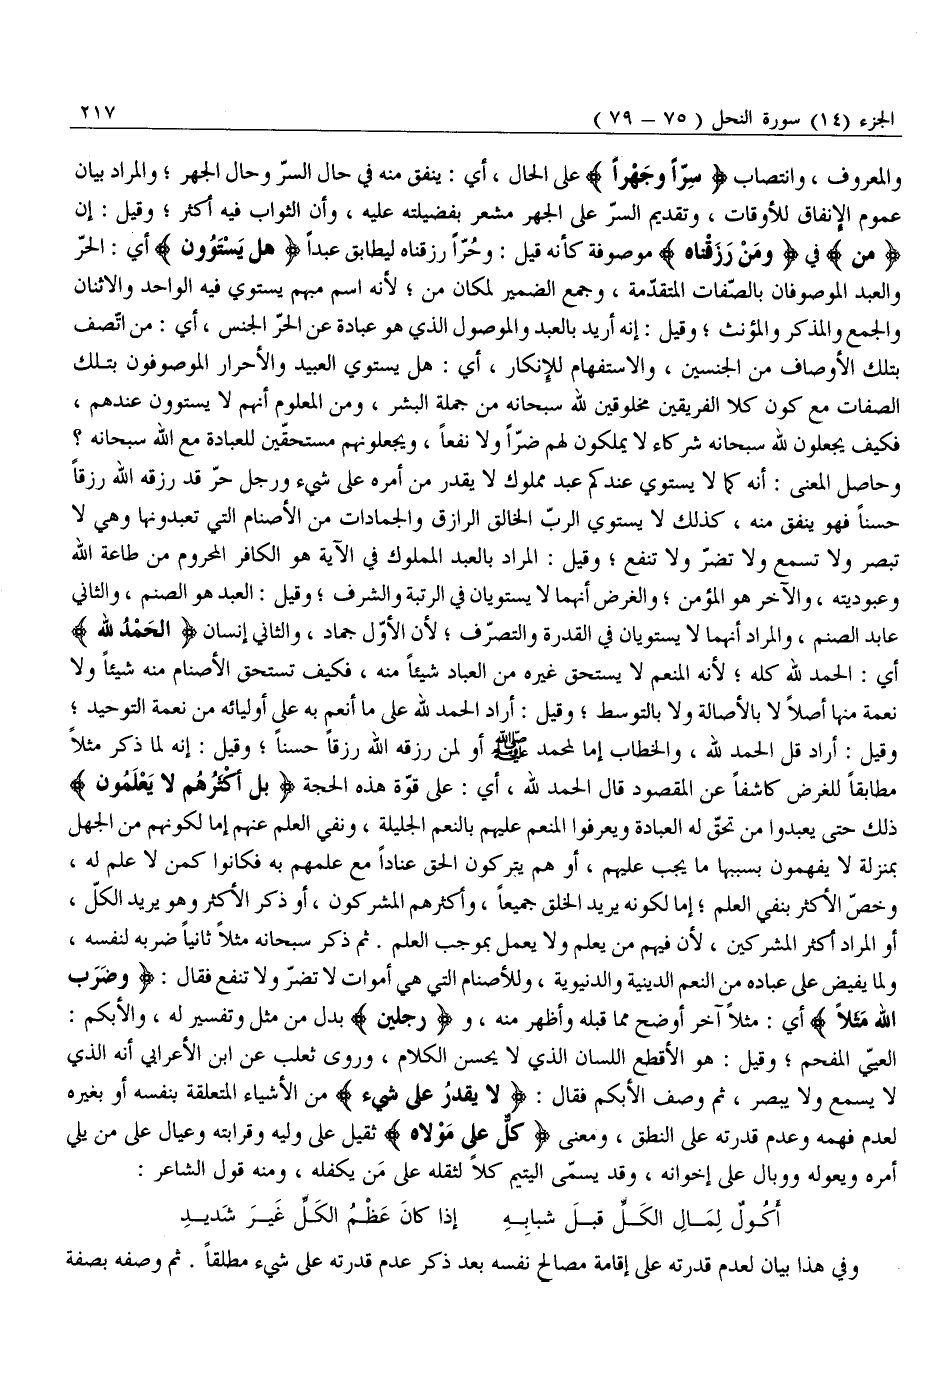 الجزء (١٤) سورة النحل ( ٧٥ – ٧٩ ) ٢١٧
والمعروف ، وانتصاب ﴿ سِرّاً وجَهْراً ﴾ على الحال ، أي : ينفق منه في حال السرّ وحال الجهر ؛ والمراد بيان
عموم الإنفاق للأوقات ، وتقديم السرّ على الجهر مشعر بفضيلته عليه ، وأن الثواب فيه أكثر ؛ وقيل : إن
﴿ من ﴾ في ﴿ ومَنْ رَزَقْناه ﴾ موصوفة كأنه قيل : وحُرّاً رزقناه ليطابق عبداً ﴿ هل يَسْتَوُون ﴾ أي : الحرّ
والعبد الموصوفان بالصّفات المتقدّمة ، وجمع الضمير لمكان من ؛ لأنه اسم مبهم يستوي فيه الواحد والاثنان
والجمع والمذكر والمؤنث ؛ وقيل : إنه أريد بالعبد والموصول الذي هو عبارة عن الحرّ الجنس ، أي : من اتّصف
بتلك الأوصاف من الجنسين ، والاستفهام للإنكار ، أي : هل يستوي العبيد والأحرار الموصوفون بتلك
الصفات مع كون كلا الفريقين مخلوقين لله سبحانه من جملة البشر ، ومن المعلوم أنهم لا يستوون عندهم ،
فكيف يجعلون لله سبحانه شركاء لا يملكون لهم ضرّاً ولا نفعاً ، ويجعلونهم مستحقّين للعبادة مع الله سبحانه ؟
وحاصل المعنى : أنه كما لا يستوي عندكم عبد مملوك لا يقدر من أمره على شيء ورجل حرّ قد رزقه الله رزقاً
حسناً فهو ينفق منه ، كذلك لا يستوي الربّ الخالق الرازق والجمادات من الأصنام التي تعبدونها وهي لا
تبصر ولا تسمع ولا تضرّ ولا تنفع ؛ وقيل : المراد بالعبد المملوك في الآية هو الكافر المحروم من طاعة الله
وعبوديته ، والآخر هو المؤمن ؛ والغرض أنهما لا يستويان في الرتبة والشرف ؛ وقيل : العبد هو الصنم ، والثاني
عابد الصنم ، والمراد أنهما لا يستويان في القدرة والتصرّف ؛ لأن الأوّل جماد ، والثاني إنسان ﴿ الحَمْدُ لله ﴾
أي : الحمد لله كله ؛ لأنه المنعم لا يستحق غيره من العباد شيئاً منه ، فكيف تستحق الأصنام منه شيئاً ولا
نعمة منها أصلاً لا بالأصالة ولا بالتوسط ؛ وقيل : أراد الحمد لله على ما أنعم به على أوليائه من نعمة التوحيد ؛
وقيل : أراد قل الحمد لله ، والخطاب إما لمحمد ﷺ أو لمن رزقه الله رزقاً حسناً ؛ وقيل : إنه لما ذكر مثلاً
مطابقاً للغرض كاشفاً عن المقصود قال الحمد لله ، أي : على قوّة هذه الحجة ﴿ بل أكْثَرُهُم لا يَعْلَمُون ﴾
ذلك حتى يعبدوا من تحقّ له العبادة ويعرفوا المنعم عليهم بالنعم الجليلة ، ونفي العلم عنهم إما لكونهم من الجهل
بمنزلة لا يفهمون بسببها ما يجب عليهم ، أو هم يتركون الحق عناداً مع علمهم به فكانوا كمن لا علم له ،
وخصّ الأكثر بنفي العلم ؛ إما لكونه يريد الخلق جميعاً ، وأكثرهم المشركون ، أو ذكر الأكثر وهو يريد الكلّ ،
أو المراد أكثر المشركين ، لأن فيهم من يعلم ولا يعمل بموجب العلم . ثم ذكر سبحانه مثلاً ثانياً ضربه لنفسه ،
ولما يفيض على عباده من النعم الدينية والدنيوية ، وللأصنام التي هي أموات لا تضرّ ولا تنفع فقال : ﴿ وضَرَب
الله مَثَلاً ﴾ أي : مثلاً آخر أوضح مما قبله وأظهر منه ، و ﴿ رجلين ﴾ بدل من مثل وتفسير له ، والأبكم :
العييّ المفحم ؛ وقيل : هو الأقطع اللسان الذي لا يحسن الكلام ، وروى ثعلب عن ابن الأعرابي أنه الذي
لا يسمع ولا يبصر ، ثم وصف الأبكم فقال : ﴿ لا يقدرُ على شيء ﴾ من الأشياء المتعلقة بنفسه أو بغيره
لعدم فهمه وعدم قدرته على النطق ، ومعنى ﴿ كلٌّ على مَوْلاه ﴾ ثقيل على وليه وقرابته وعيال على من يلي
أمره ويعوله ووبال على إخوانه ، وقد يسمّى اليتيم كلاً لثقله على مَن يكفله ، ومنه قول الشاعر :
أَكُولٌ لِمَالِ الكَلِّ قبلَ شبابِهِ إذا كانَ عَظْمُ الكَلِّ غَيرَ شَديدِ
وفي هذا بيان لعدم قدرته على إقامة مصالح نفسه بعد ذكر عدم قدرته على شيء مطلقاً . ثم وصفه بصفة